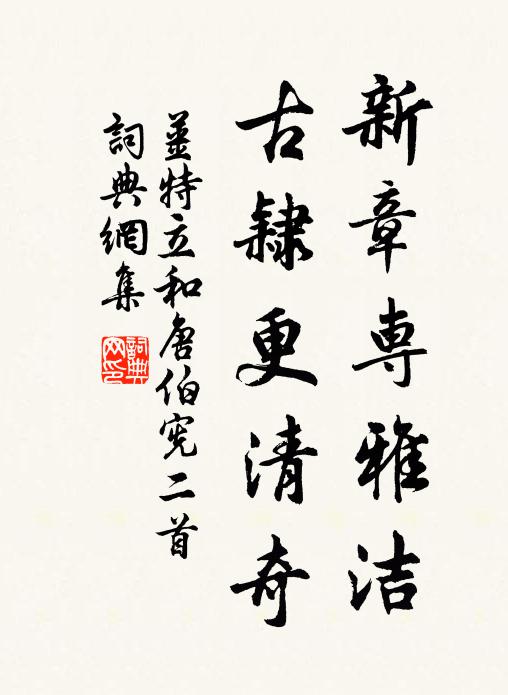 新章専雅洁
古隸更清奇
姜特立和唐伯宪二首
詞典網集
詞典网印